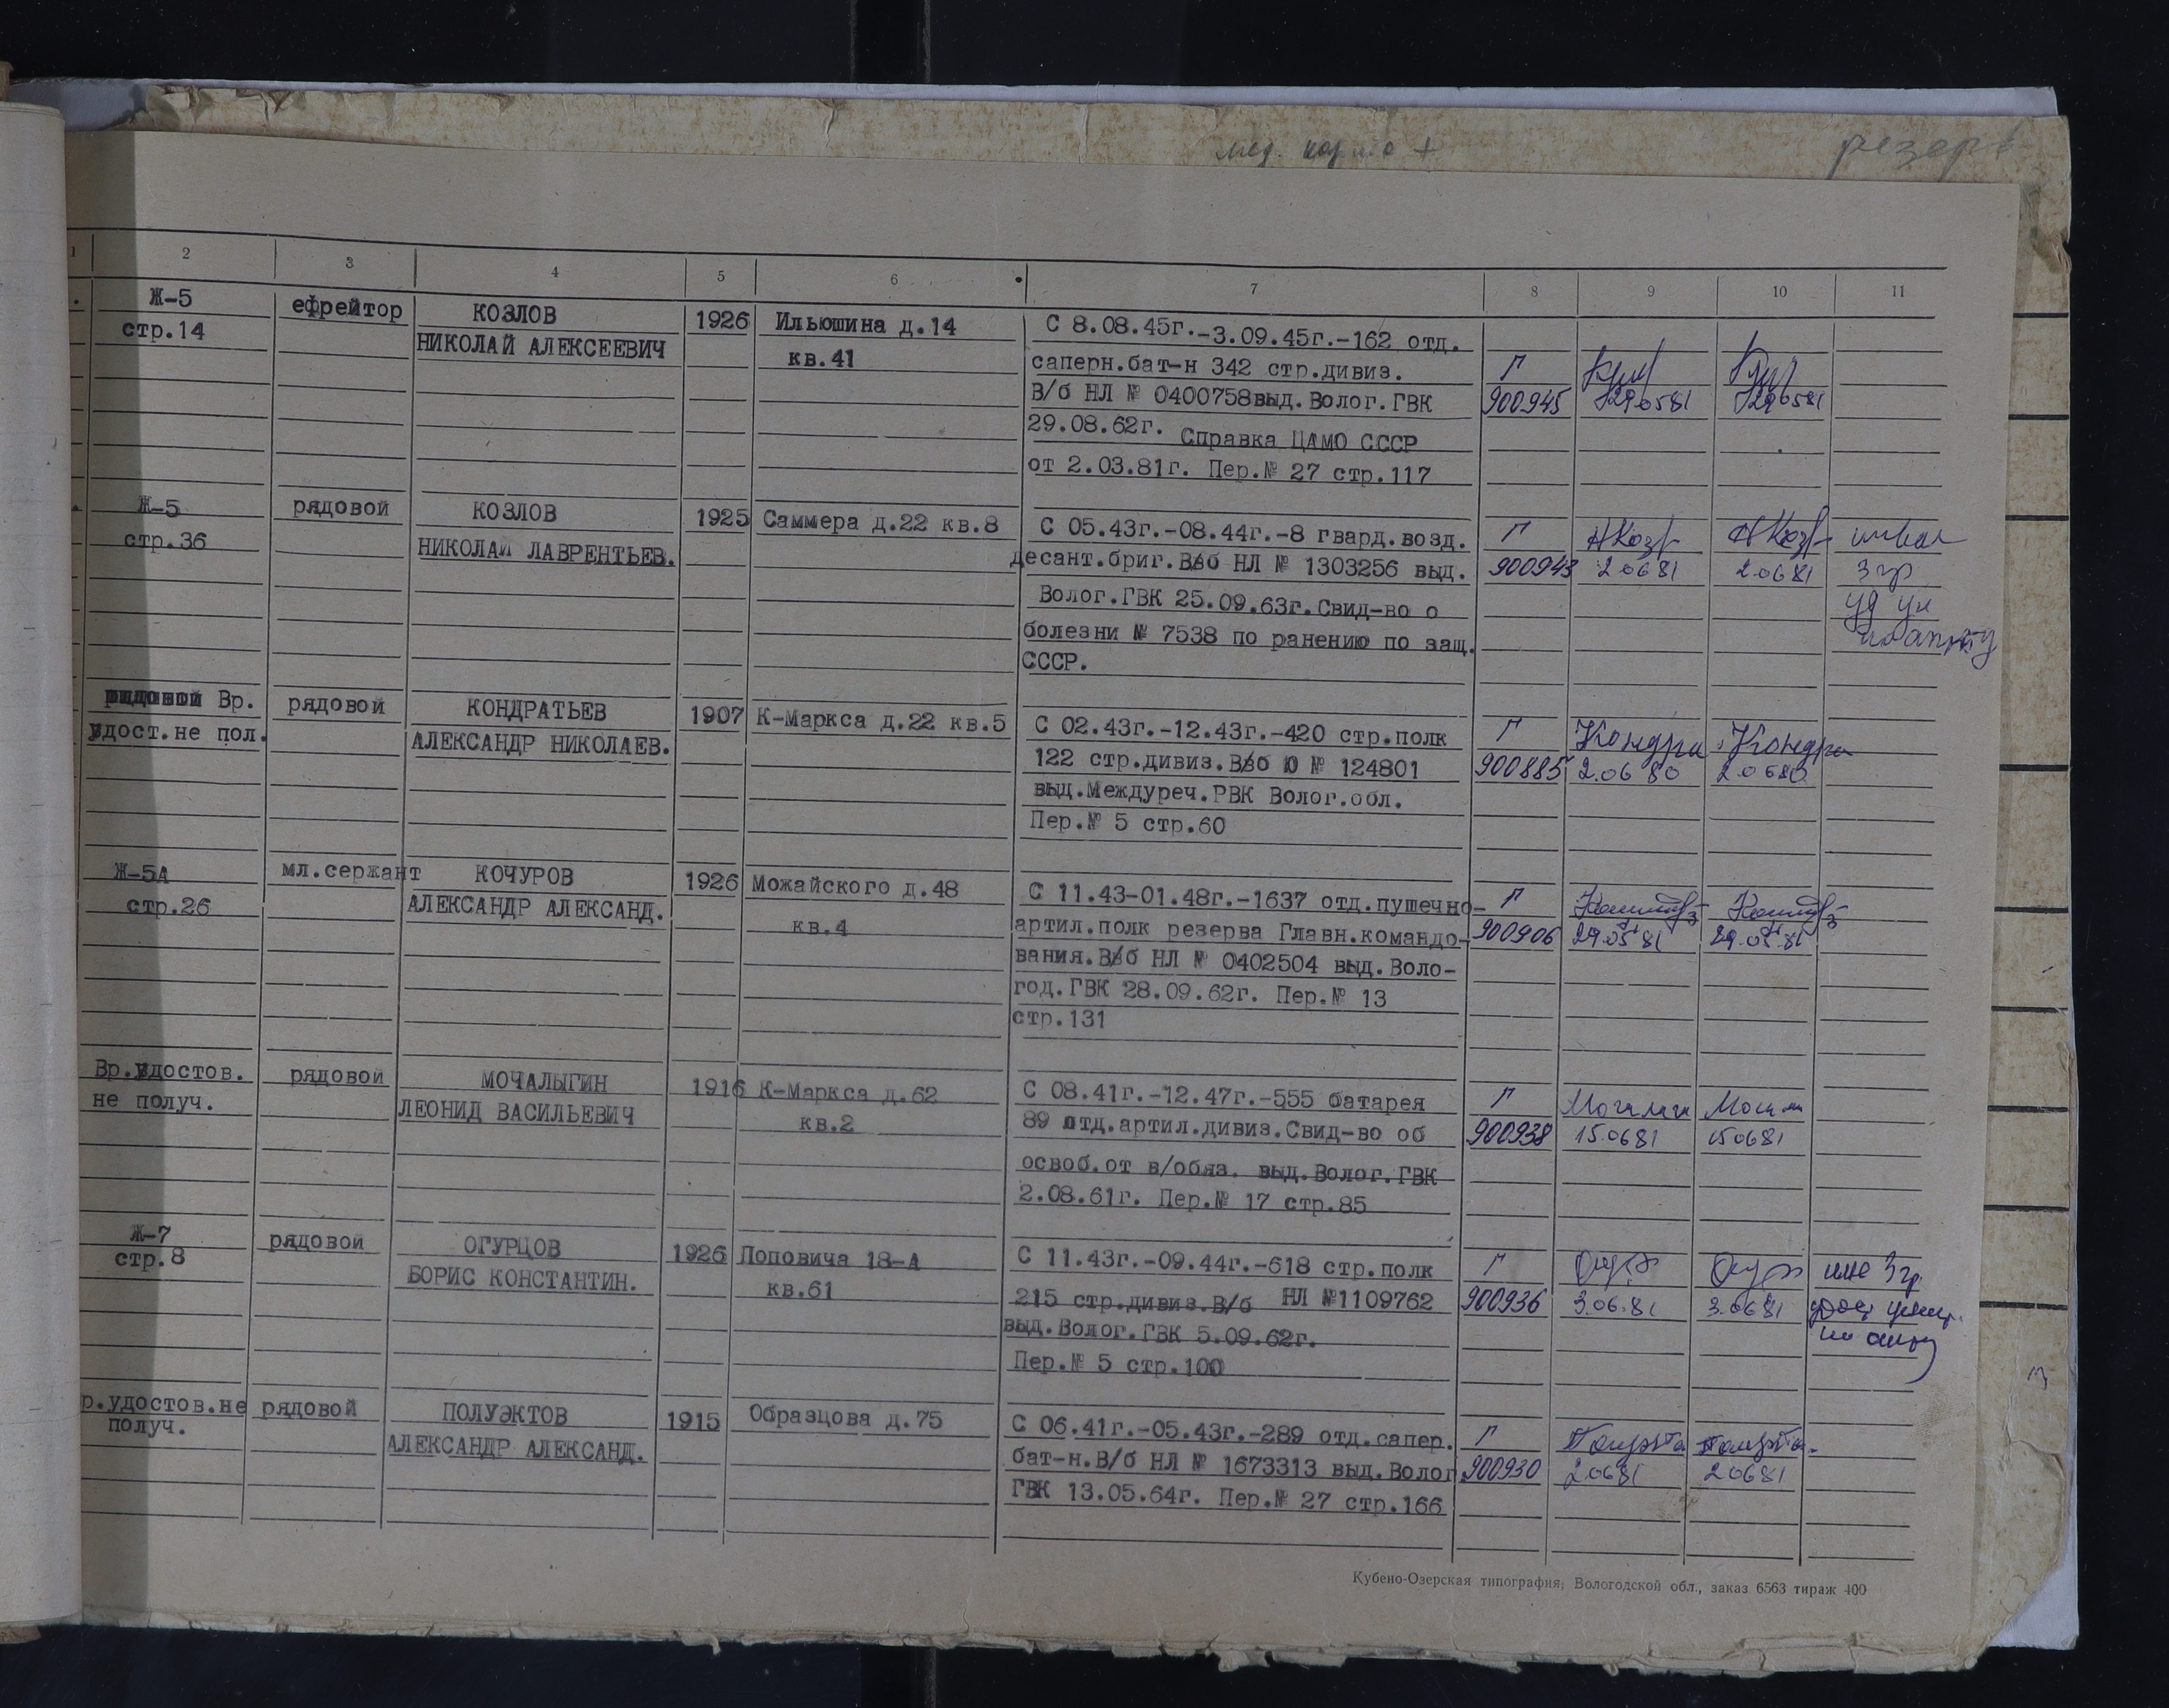 мед. карта +
резерв
1 2 3 4 5 6 7 8 9 10 11
Ж-5 ефрейтор КОЗЛОВ 1926 Ильюшина д.14 С 8.08.45г.-3.09.45г.-162 отд.
стр.14 НИКОЛАЙ АЛЕКСЕЕВИЧ кв.41 саперн.бат-н 342 стр.дивиз. Г
В/б НЛ № 0400758выд.Волог.ГВК 900945 290581 290581
29.08.62г. Справка ЦАМО СССР
от 2.03.81г. Пер.№ 27 стр.117
Ж-5 рядовой КОЗЛОВ 1925 Саммера д.22 кв.8 С 05.43г.-08.44г.-8 гвард.возд. Г НКозл НКозл инвал
стр.36 НИКОЛАЙ ЛАВРЕНТЬЕВ. десант.бриг.В/б НЛ № 1303256 выд. 900943 20681 20681 3 гр
Волог.ГВК 25.09.63г.Свид-во о
болезни № 7538 по ранению по защ.
СССР.
Вр. рядовой КОНДРАТЬЕВ 1907 К-Маркса д.22 кв.5 С 02.43г.-12.43г.-420 стр.полк Г Кондра Кондра
удост.не пол. АЛЕКСАНДР НИКОЛАЕВ. 122 стр.дивиз.В/б Ю № 124801 900885 2.06 80 20680
выд.Междуреч.РВК Волог.обл.
Пер.№ 5 стр.60
Ж-5А мл.сержант КОЧУРОВ 1926 Можайского д.48 С 11.43-01.48г.-1637 отд.пушечно- Г
стр.26 АЛЕКСАНДР АЛЕКСАНД. кв.4 артил.полк резерва Главн.командо- 900906 29.05 81 29.05.81
вания.В/б НЛ № 0402504 выд.Воло-
год.ГВК 28.09.62г. Пер.№ 13
стр.131
Вр.удостов. рядовой МОЧАЛЫГИН 1916 К-Маркса д.62 С 08.41г.-12.47г.-555 батарея Г
не получ. ЛЕОНИД ВАСИЛЬЕВИЧ кв.2 89 отд.артил.дивиз.Свид-во об 900938 15.0681 150681
освоб.от в/обяз. выд.Волог.ГВК
2.08.61г. Пер.№ 17 стр.85
Ж-7 рядовой ОГУРЦОВ 1926 Поповича 18-А С 11.43г.-09.44г.-618 стр.полк Г 3 гр.
стр.8 БОРИС КОНСТАНТИН. кв.61 215 стр.дивиз.В/б НЛ №1109762 900936 3.06.81 3.0681
выд.Волог.ГВК 5.09.62г.
Пер.№ 5 стр.100
р.удостов.не рядовой ПОЛУЭКТОВ 1915 Образцова д.75 С 06.41г.-05.43г.-289 отд.сапер. Г
получ. АЛЕКСАНДР АЛЕКСАНД. бат-н.В/б НЛ № 1673313 выд.Волог 900930 20681 20681
ГВК 13.05.64г. Пер.№ 27 стр.166
Кубено-Озерская типография; Вологодской обл., заказ 6563 тираж 400